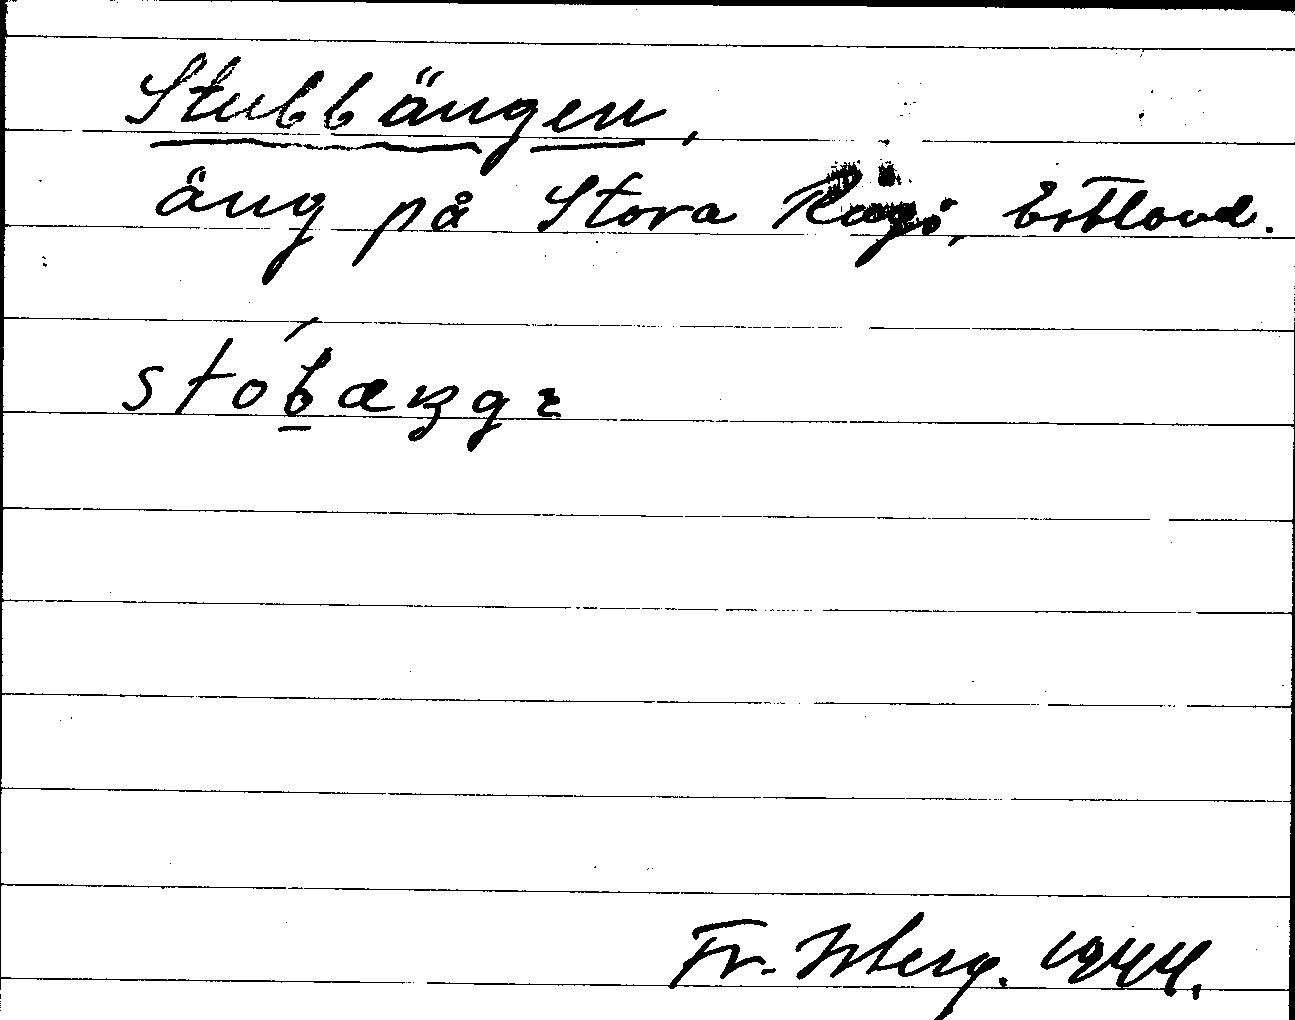 Stubbängen,
äng på Stora Rågö, Estland.
stób̲æŋgɛ
Fr. Isberg. 1944.